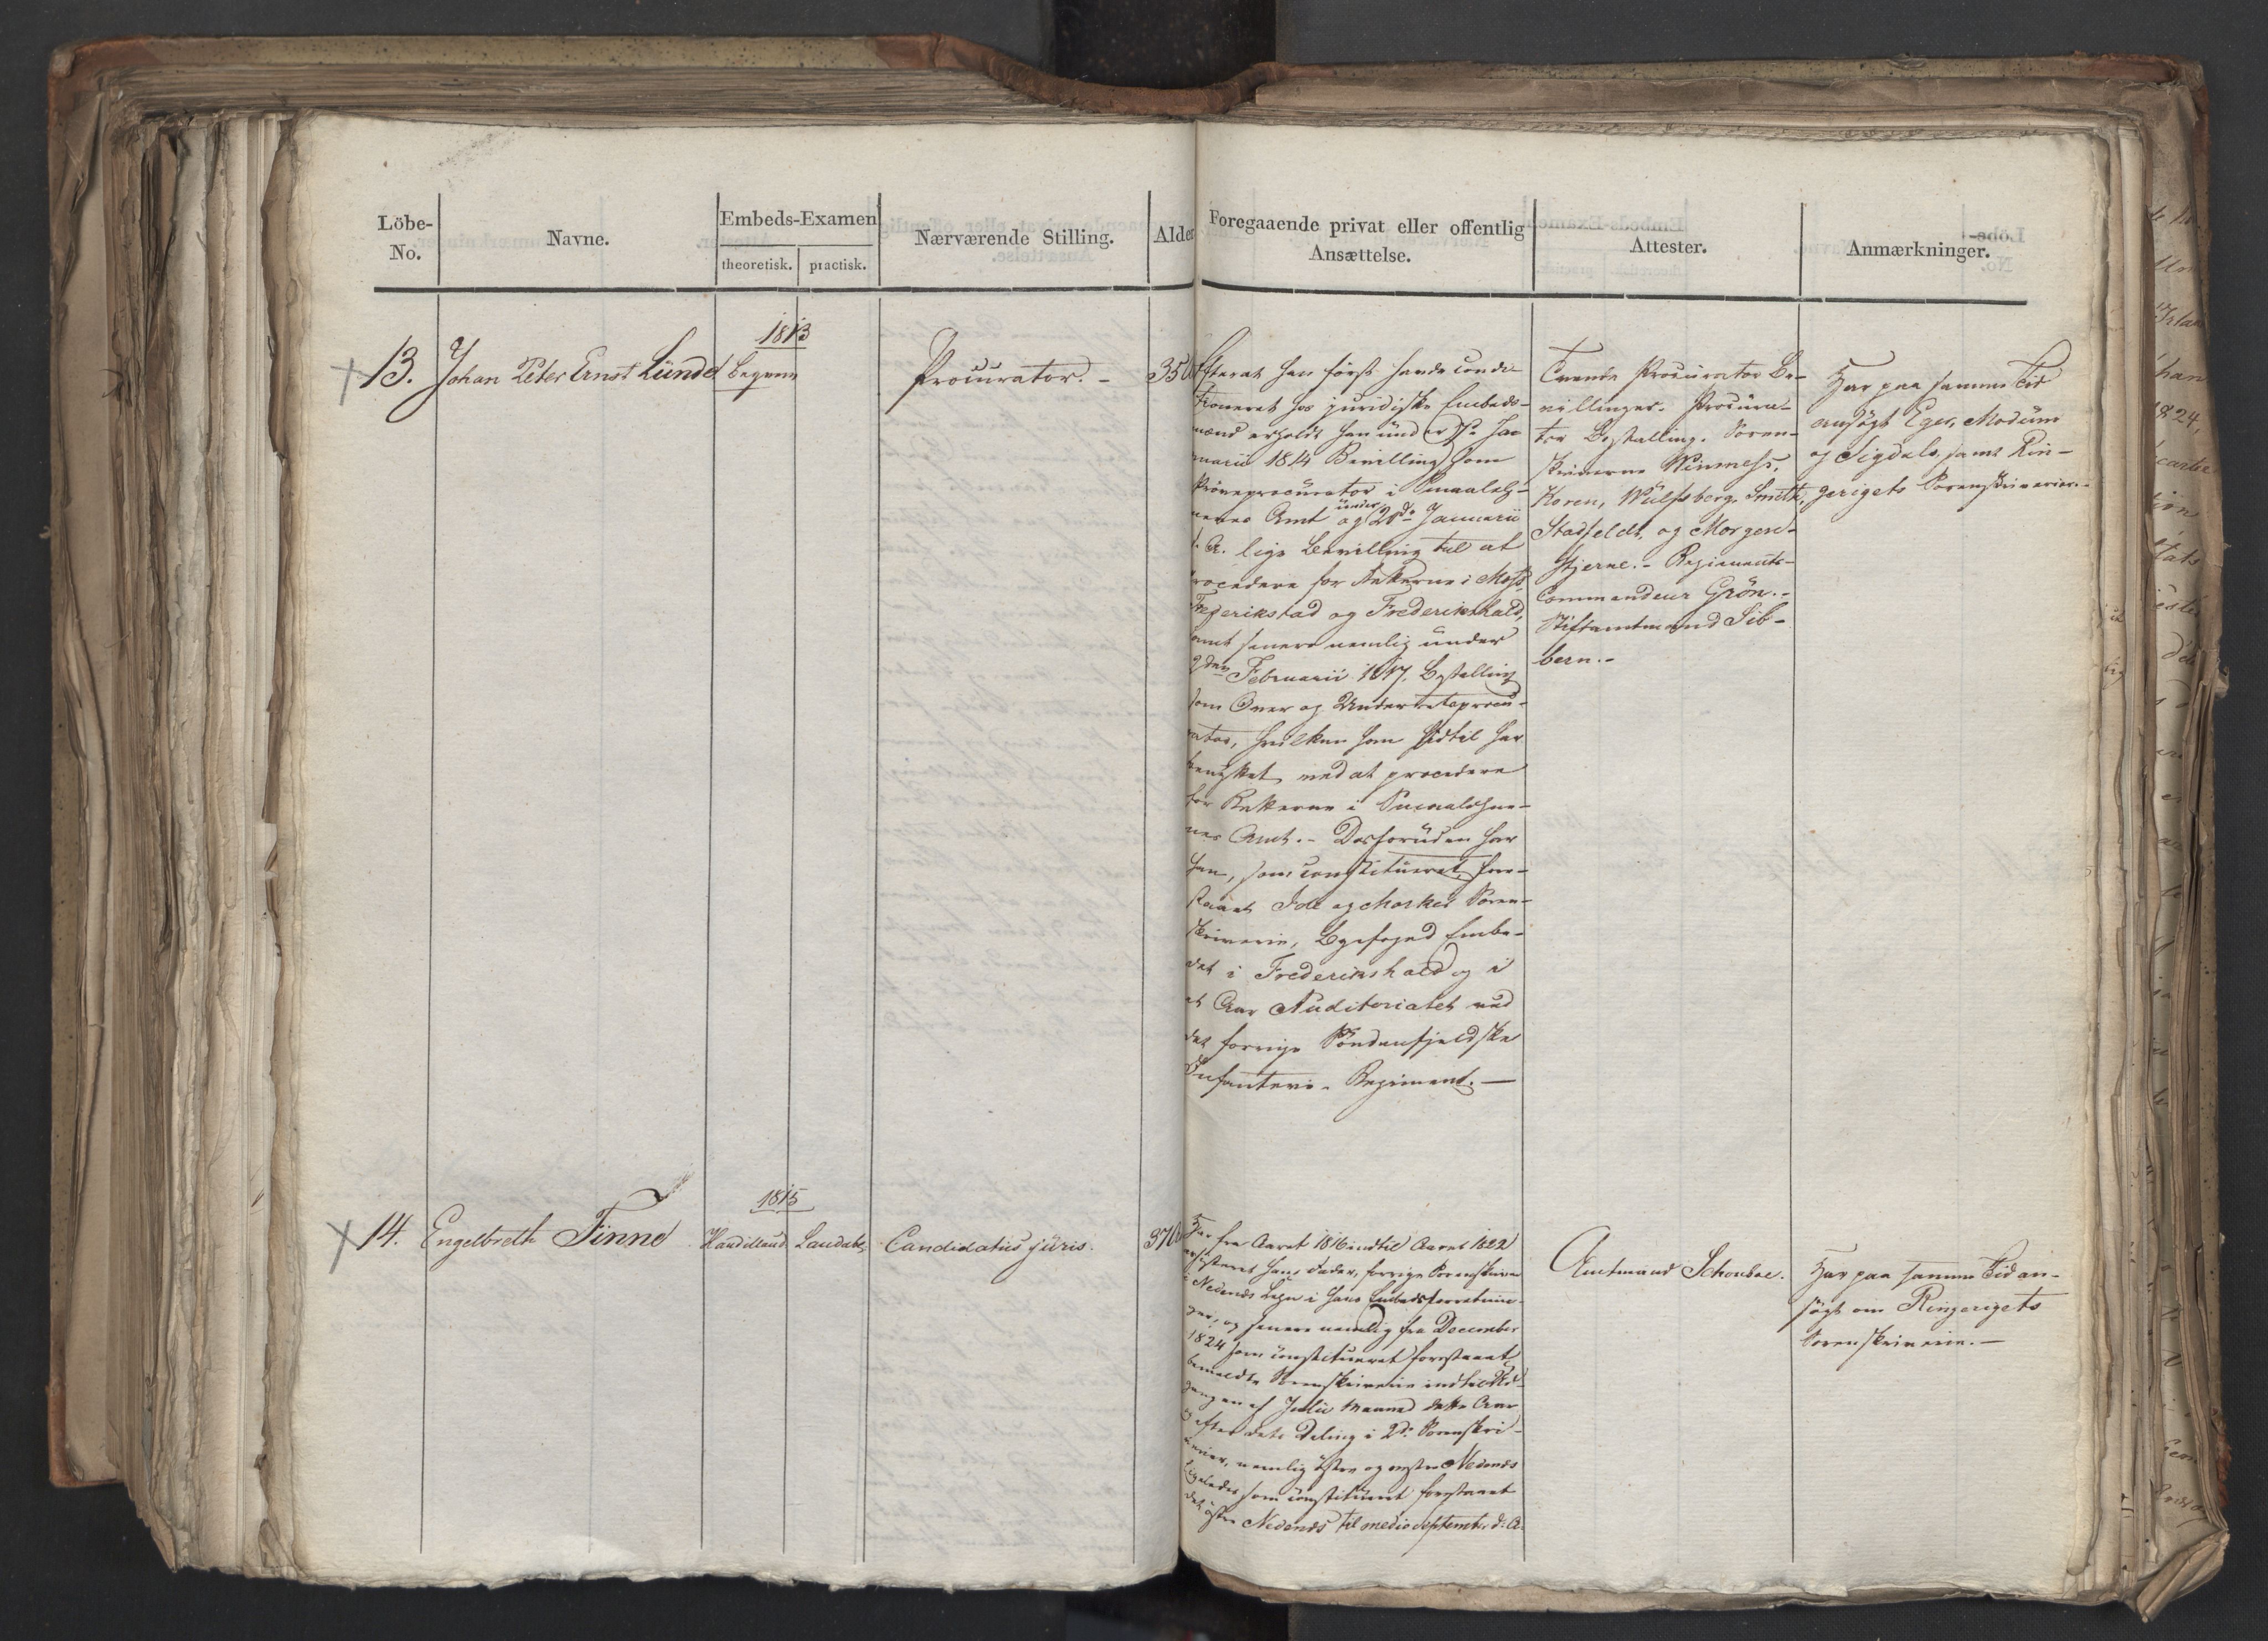 Löbe-
No.
Navne.
Embeds-Examen
theoretisk. practisk.
Nærværende Stilling.
Alder
Foregaaende privat eller offentlig
Ansættelse.
Attester.
Anmærkninger.
1813
13. Johan Peter Ernst Lünd
begvem
Procurator. -
35
Efterat han først havde condi-
tioneret hos juridiske Embeds-
mænd erholdt han under Ja-
nuarii 1814 Bevilling som
Prøveprocurator i Smaaleh-
nenes Amt og under 28de Januarii
s. A. lige Bevilling til at
procedere for Retterne i Moss,
Frederikstad og Frederikshald,
samt senere nemlig under
Februarii 1817. Bestalling
som Over og Underretsprocu-
rator, hvilken han hidtil har
benyttet med at procedere
for Retterne i Smaalehne-
nes Amt. - Desforuden har
han, som constitueret, fore-
staaet Idde og Markers Soren-
skriverie, Byefoged Embe-
det i Frederikshald og i
et Aar Auditoriatet ved
det forrige Søndenfjeldske
Infanterie-Regiment. —
Tvende Procurator Be-
villinger. Procura-
tor Bestalling. Soren-
skriverne
Koren, Wülfsberg, Smith,
Stadfeldt, og Morgen-
stjerne. - Regiments-
Commandeur Grön. -
Stiftamtmand Sib-
bern. -
Har paa samme Tid
ansøgt Eger, Modum
og Sigdals, samt Rin-
gerigets Sorenskriverier. -
1815
14. Engelbreth Finne
Haud illaud. Laudab.
Candidatus juris.
37
Har fra Aaret 1816 indtil Aaret 1822
assisteret hans Fader, forrige Sorenskriver
i Nedenæs Lehn i hans Embedsforretnin-
ger, og senere nemlig fra December
1824 som constitueret forestaaet
bemeldte Sorenskriverie indtil Ud-
gangen af Julii Maaned dette Aar
og efter dets Deling i 2de Sorenskri-
verier, nemlig østre og vestre Nedenæs
ligeledes som constitueret forestaaet
det østre Nedenæs til medio Septembr. d: A:
Amtmand Schouboe.
Har paa samme Tid an-
søgt om Ringerigets
Sorenskriverie. —